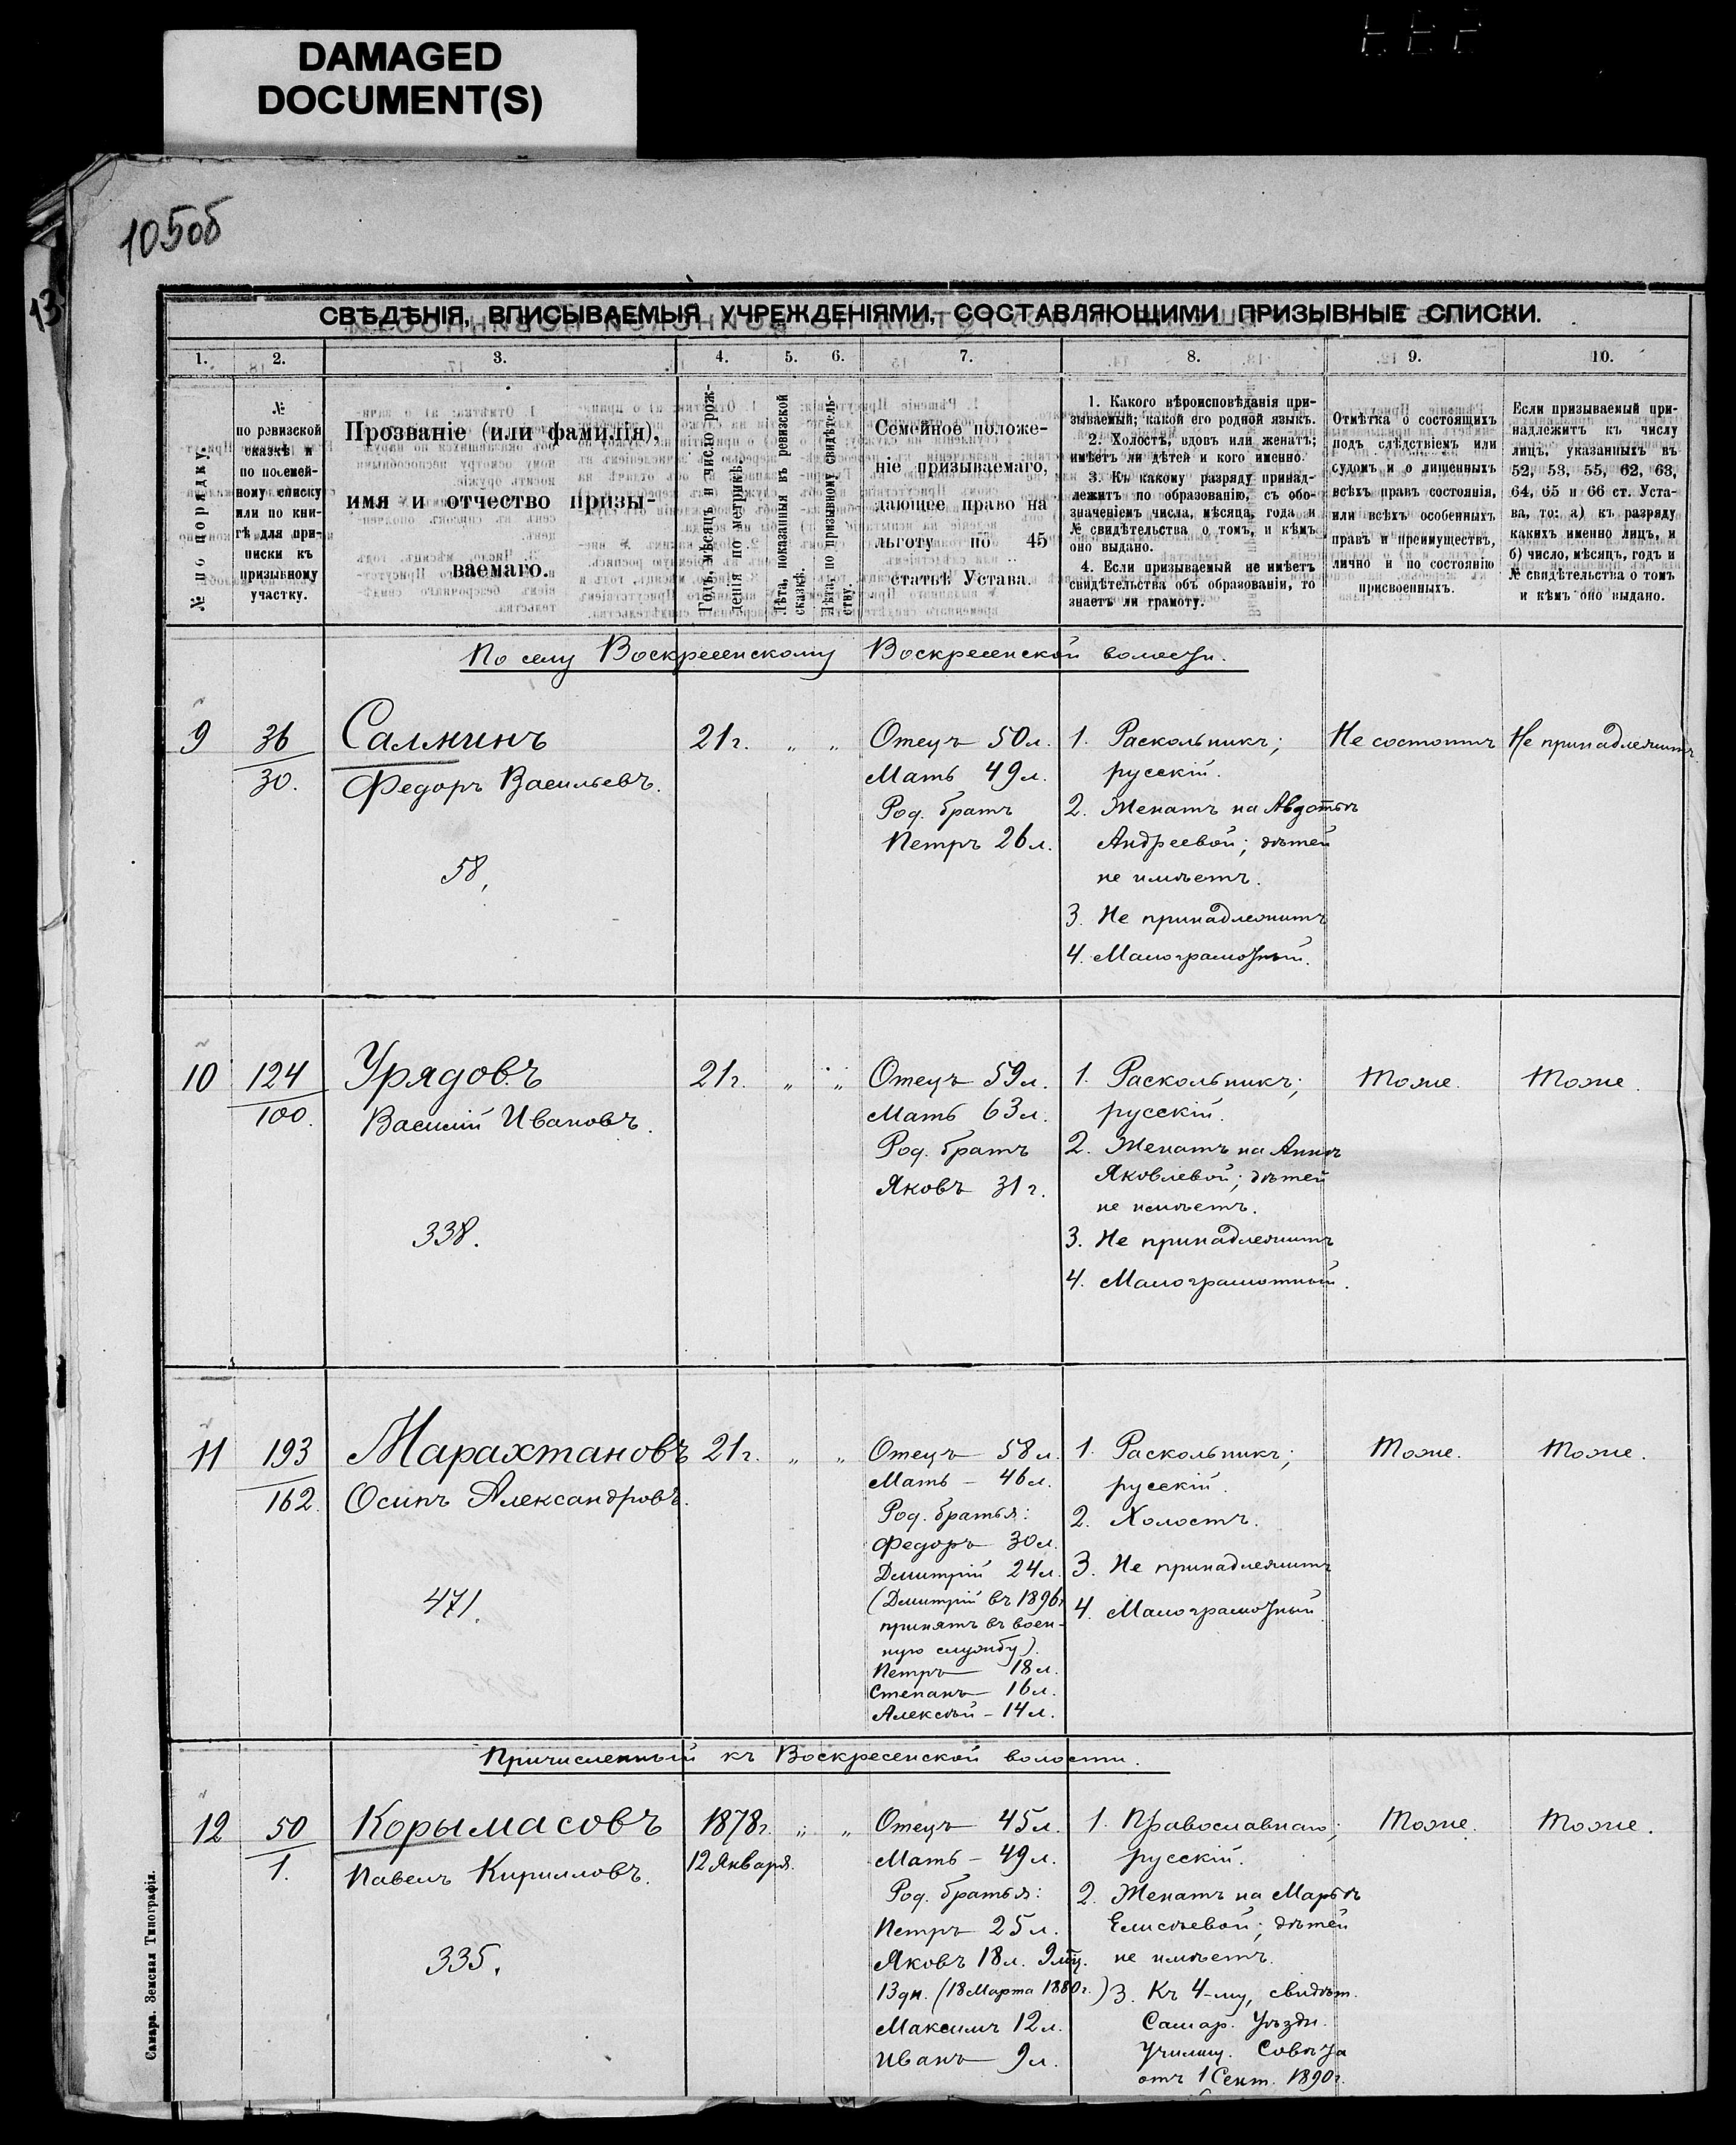 DAMAGED
DOCUMENT(S)
105об
13
СВѢДѢНІЯ, ВПИСЫВАЕМЫЯ УЧРЕЖДЕНІЯМИ, СОСТАВЛЯЮЩИМИ ПРИЗЫВНЫЕ СПИСКИ.
1. 2. 3. 4. 5. 6. 7. 8. 9. 10.
№ по порядку.
№
по ревизской
сказкѣ и
по посемей-
ному списку
или по кни-
гѣ для при-
писки къ
призывному
участку.
Прозваніе (или фамилія),
имя и отчество призы-
ваемаго.
Годъ, мѣсяцъ и число рож-
денія по метрикѣ.
Лѣта, показанныя въ ревизской
сказкѣ.
Лѣта, по призывному свидѣтель-
ству.
Семейное положе-
ніе призываемаго,
дающее право на
льготу по 45
статьѣ Устава.
1. Какого вѣроисповѣданія при-
зываемый; какой его родной языкъ.
2. Холостъ, вдовъ или женатъ;
имѣетъ ли дѣтей и кого именно.
3. Къ какому разряду принад-
лежитъ по образованію, съ обо-
значеніемъ числа, мѣсяца, года и
№ свидѣтельства о томъ, и кѣмъ
оно выдано.
4. Если призываемый не имѣетъ
свидѣтельства объ образованіи, то
знаетъ ли грамоту.
Отмѣтка о состоящихъ
подъ слѣдствіемъ или
судомъ и о лишенныхъ
всѣхъ правъ состоянія,
или всѣхъ особенныхъ
правъ и преимуществъ,
лично и по состоянію
присвоенныхъ.
Если призываемый при-
надлежитъ къ числу
лицъ, указанныхъ въ
52, 53, 55, 62, 63,
64, 65 и 66 ст. Уста-
ва, то: а) къ разряду
какихъ именно лицъ, и
б) число, мѣсяцъ, годъ и
№ свидѣтельства о томъ
и кѣмъ оно выдано.
По селу Воскресенскому Воскресенской волости.
9
36
30.
Салминъ
Федоръ Васильевъ.
58,
21 г. „ „
Отецъ 50 л.
Мать 49 л.
Род. братъ
Петръ 26 л.
1. Раскольникъ;
русскій.
2. Женатъ на Авдотьѣ
Андреевой; дѣтей
не имѣетъ.
3. Не принадлежитъ
4. Малограмотный.
Не состоитъ
Не принадлежитъ
10
124
100.
Урядовъ
Василій Ивановъ.
338.
21 г. „ „
Отецъ 59 л.
Мать 63 л.
Род. братъ
Яковъ 31 г.
1. Раскольникъ;
русскій.
2. Женатъ на Аннѣ
Яковлевой; дѣтей
не имѣетъ.
3. Не принадлежитъ
4. Малограмотный.
Тоже.
Тоже.
11
193
162.
Марахтановъ
Осипъ Александровъ.
471.
21 г. „ „
Отецъ 58 л.
Мать – 46 л.
Род. братья:
Федоръ 30 л.
Дмитрій 24 л.
(Дмитрій въ 1896 г
принятъ въ воен-
ную службу).
Петръ – 18 л.
Степанъ – 16 л.
Алексѣй – 14 л.
1. Раскольникъ;
русскій.
2. Холостъ.
3. Не принадлежитъ
4. Малограмотный
Тоже.
Тоже.
Причисленный къ Воскресенской волости.
12
50
1.
Корымасовъ
Павелъ Кирилловъ.
335.
1878 г. „ „
12 Января.
Отецъ 45 л.
Мать – 49 л.
Род. братья:
Петръ 25 л.
Яковъ 18 л. 9 мц.
13 дн. (18 Марта 1880 г.)
Максимъ 12 л.
Иванъ – 9 л.
1. Православнаго;
русскій.
2. Женатъ на Марьѣ
Елисѣевой; дѣтей
не имѣетъ.
3. Къ 4-му, свидѣт.
Самар. Уѣздн.
Училищ. Совѣта
отъ 1 Сент. 1890 г.
Тоже.
Тоже.
Самара. Земская Типографія.